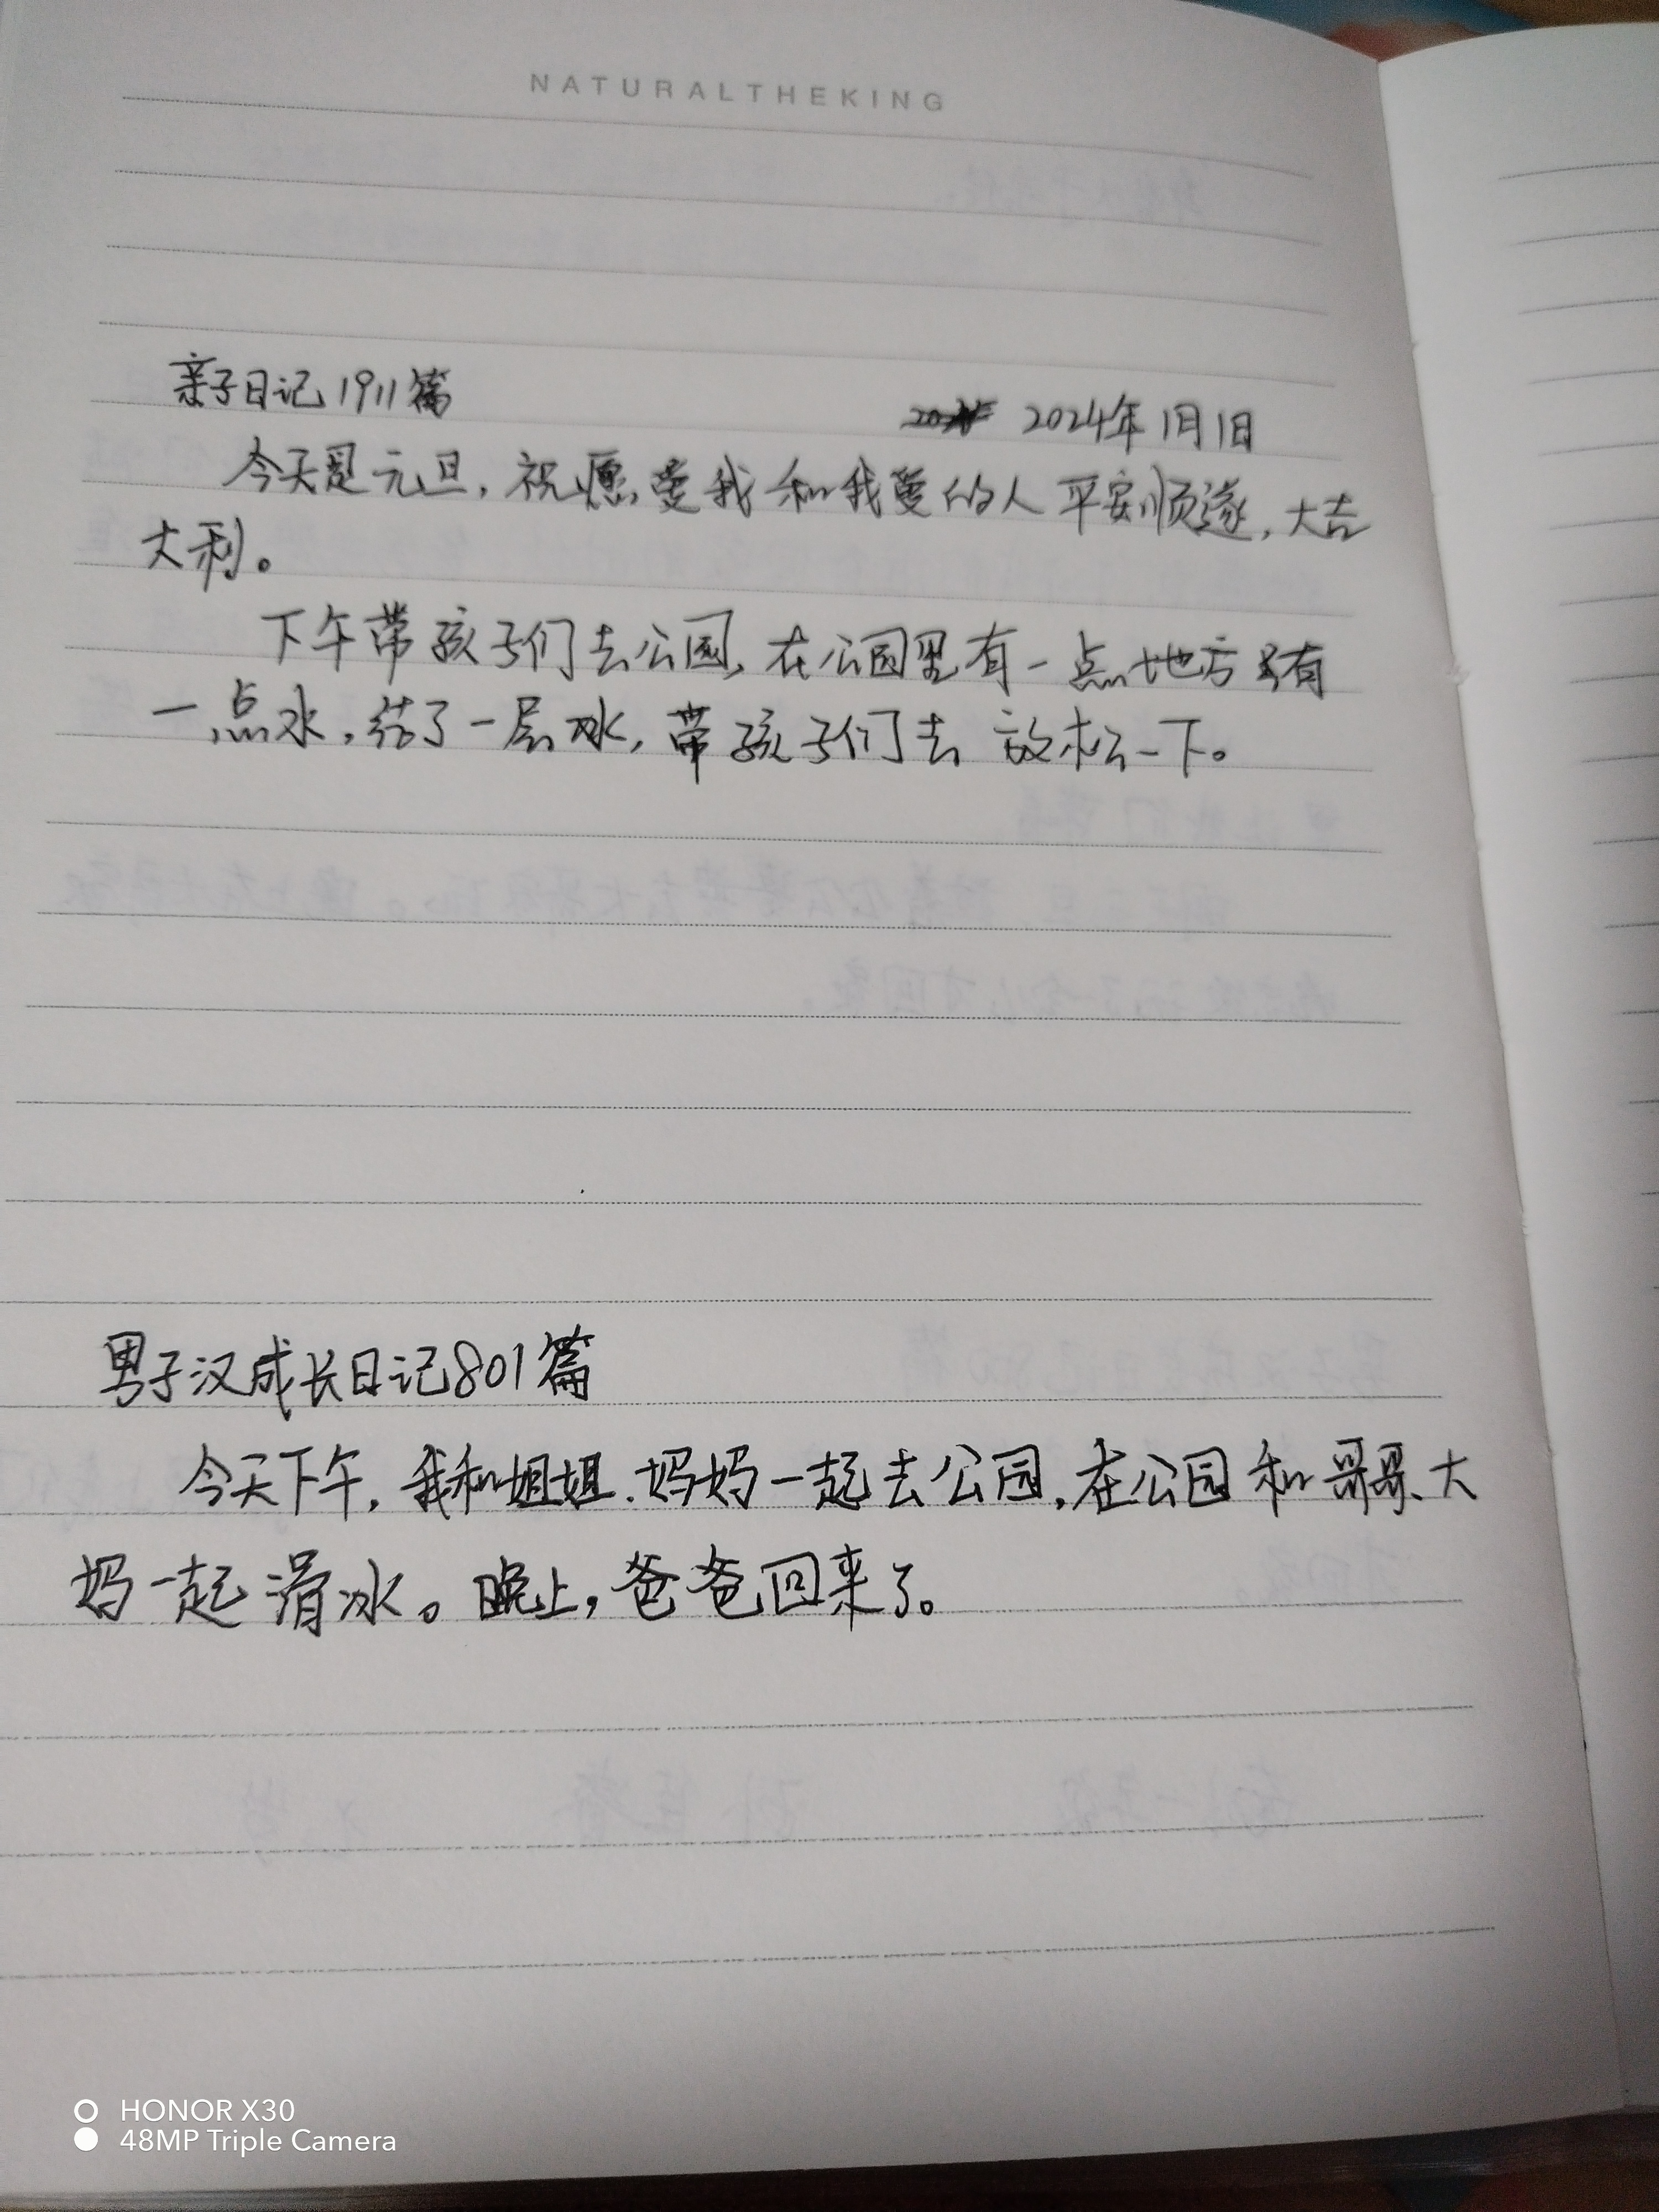 NATURALTHEKING
亲子日记1911篇
2024年1月1日
今天是元旦,祝愿爱我和我爱的人平安顺遂,大吉
大利。
下午带孩子们去公园,在公园里有一点地方只有
一点水,结了一层冰,带孩子们去放松一下。
男子汉成长日记801篇
今天下午,我和姐姐、妈妈一起去公园,在公园和哥哥、大
妈一起滑冰。晚上,爸爸回来了。
HONOR X30
48MP Triple Camera